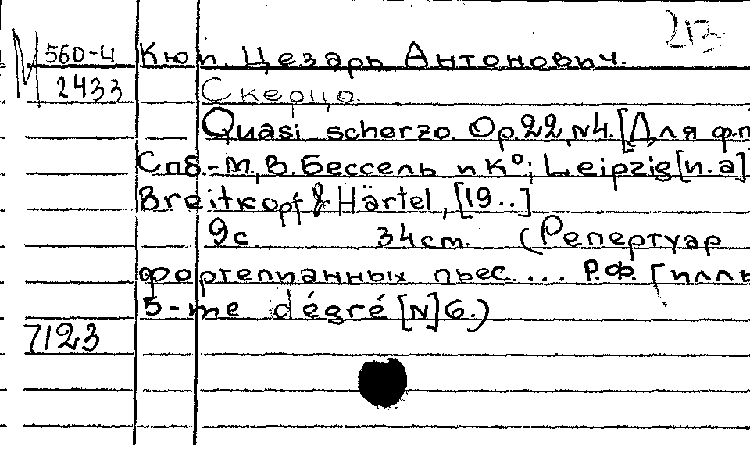 213
М 560-4 Кюи, Цезарь Антонович.
2433 Скерцо.
Quasi scherzo. Op.22, N4. [Для ф.п
Спб.-М., В. Бессель и К°; Leipzig [и.а]
Breitkopf & Härtel, [19..]
9с. 34cm. (Репертуар
фортепианных пьес... Р.Ф.
5-me dégré [N] 6.)
7123